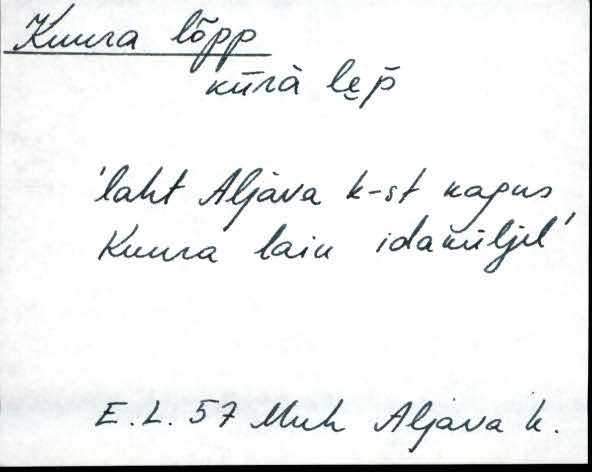 Kuura lõpp
kūrà lę̄p̄
'laht Aljava k-st kagus
Kuura laiu idaküljel'
E.L. 57 Muh Aljava k.